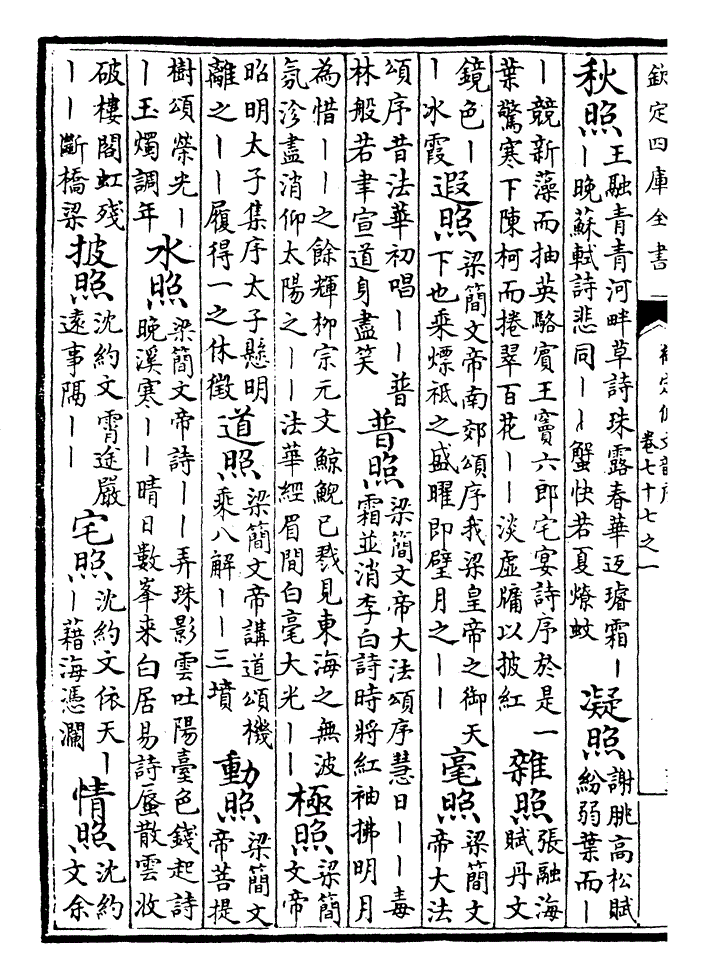 欽定四庫全書
卷七十七之一
秋照
王融青青河畔草詩珠露春華返璿霜丨
丨晚蘇軾詩悲同丨丨蟹快若夏燎蚊
凝照
謝朓高松賦
紛弱葉而丨
丨競新藻而抽英駱賓王竇六郎宅宴詩序於是一
葉驚寒下陳柯而捲翠百花丨丨淡虚牖以披紅
雜照
張融海
賦丹文
鏡色丨
丨氷霞
遐照
梁簡文帝南郊頌序我梁皇帝之御天
下也乘熛祗之盛曜即璧月之丨丨
毫照
梁簡文
帝大法
頌序昔法華初唱丨丨普
林般若聿宣道身盡笑
普照
梁簡文帝大法頌序慧日丨丨毒
霜並消李白詩時將紅袖拂明月
為惜丨丨之餘輝柳宗元文鯨鯢已戮見東海之無波
氛沴盡消仰太陽之丨丨法華經眉間白毫大光丨丨
極照
梁簡
文帝
昭明太子集序太子懸明
離之丨丨履得一之休徵
道照
梁簡文帝講道頌機
乘八解丨丨三墳
動照
梁簡文
帝菩提
樹頌榮光丨
丨玉燭調年
水照
梁簡文帝詩丨丨弄珠影雲吐陽臺色錢起詩
晚溪寒丨丨晴日數峯来白居易詩蜃散雲收
破樓閣虹殘
丨丨斷橋梁
披照
沈約文霄途嚴
遠事隔丨丨
宅照
沈約文依天丨
丨藉海憑瀾
情照
沈約
文余